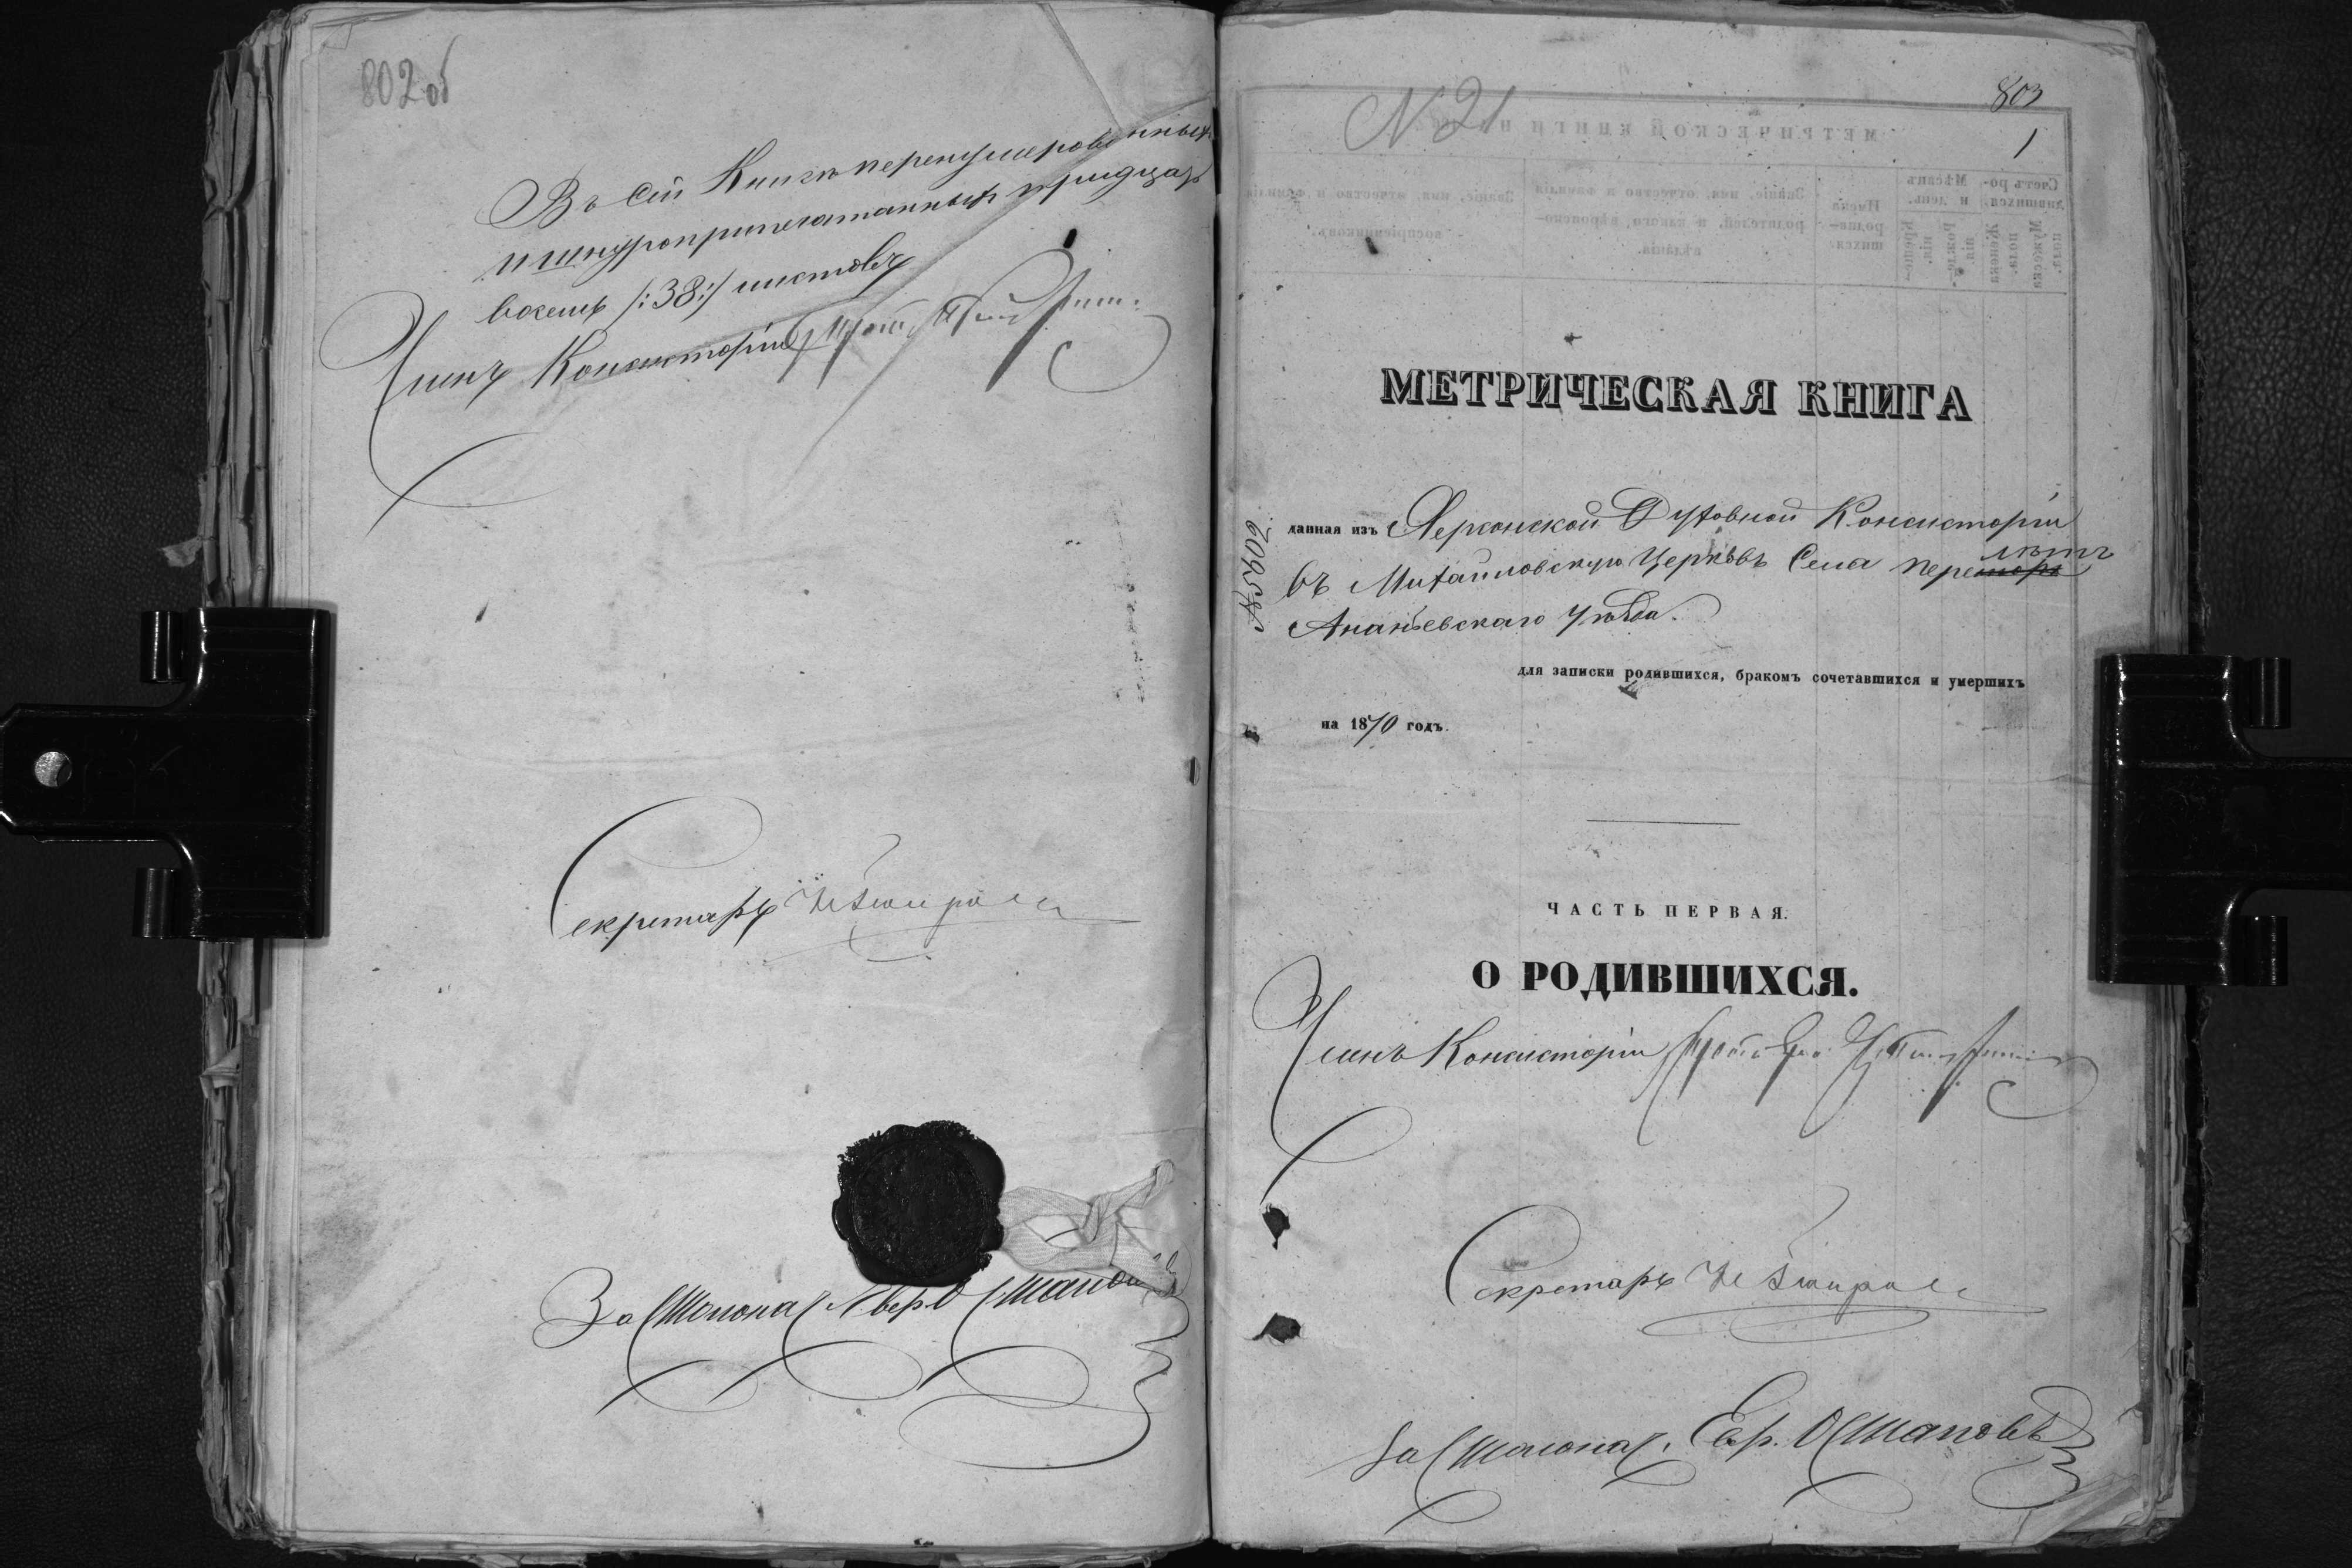 802 об
Въ сій Книгѣ перенумерованныхъ
и шнуроприпечатанныхъ тридцать
восемь /:38:/ листовъ
Членъ Консисторіи
Секретарь
За Столонач.
803
N 21
1
МЕТРИЧЕСКОЙ КНИГИ
Счетъ ро-
дившихся.
Мужеска
пола.
Женска
пола.
Мѣсяцъ
и день.
Рожде-
нія.
Креще-
нія.
Имена
родив-
шихся.
Званіе, имя, отчество и фамилія
родителей, и какого вѣроиспо-
вѣданія.
Званіе, имя, отчество и фамилія
воспріемниковъ.
МЕТРИЧЕСКАЯ КНИГА
данная изъ Херсонской Духовной Консисторіи
въ Михайловскую Церковь Села Перелѣтъ
Ананьевскаго уѣзда.
для записки родившихся, бракомъ сочетавшихся и умершихъ
на 1870 годъ.
ЧАСТЬ ПЕРВАЯ.
О РОДИВШИХСЯ.
Членъ Консисторіи
Секретарь
За Столонач. Евр. Остаповъ